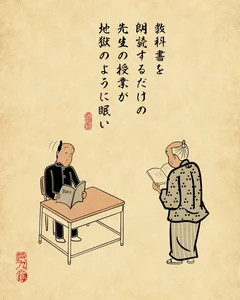 教科書を
朗読するだけの
先生の授業が
地獄のように眠い